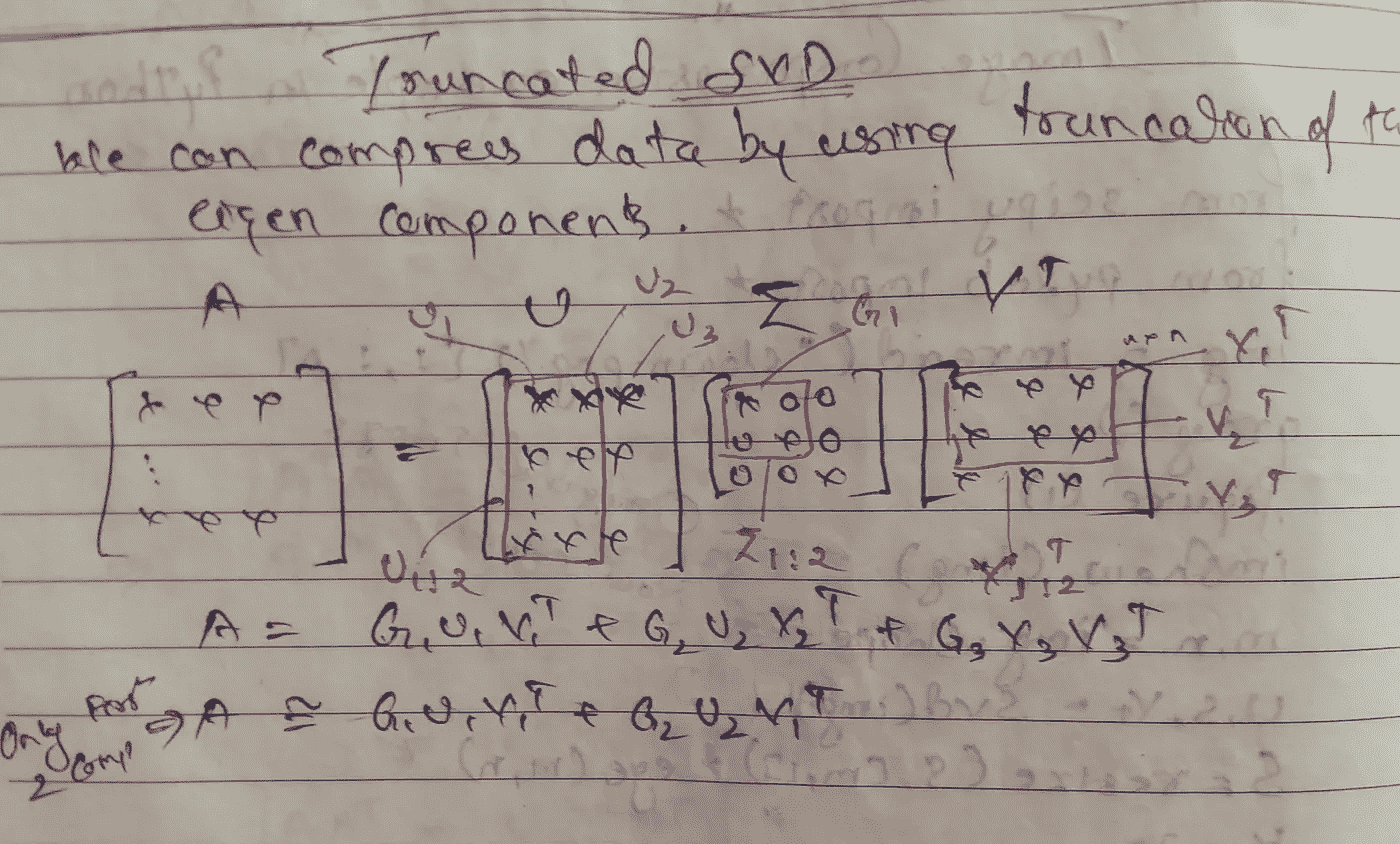 Truncated SVD
We can compress data by using truncation of
eigen components.
A U Σ V^T
U1 U2 U3 G1 n×n V1^T
[ x x x ] = [ x x x ] [ x 0 0 ] [ x x x ] V2^T
⋮ x x x 0 x 0 x x x
x x x ⋮ 0 0 x x x x V3^T
x x x
U1:2 Σ1:2 V1:2^T
A = G1 U1 V1^T + G2 U2 V2^T + G3 V3 V3^T
Only first 2 comp ⇒ A ≅ G1 U1 V1^T + G2 U2 V1^T